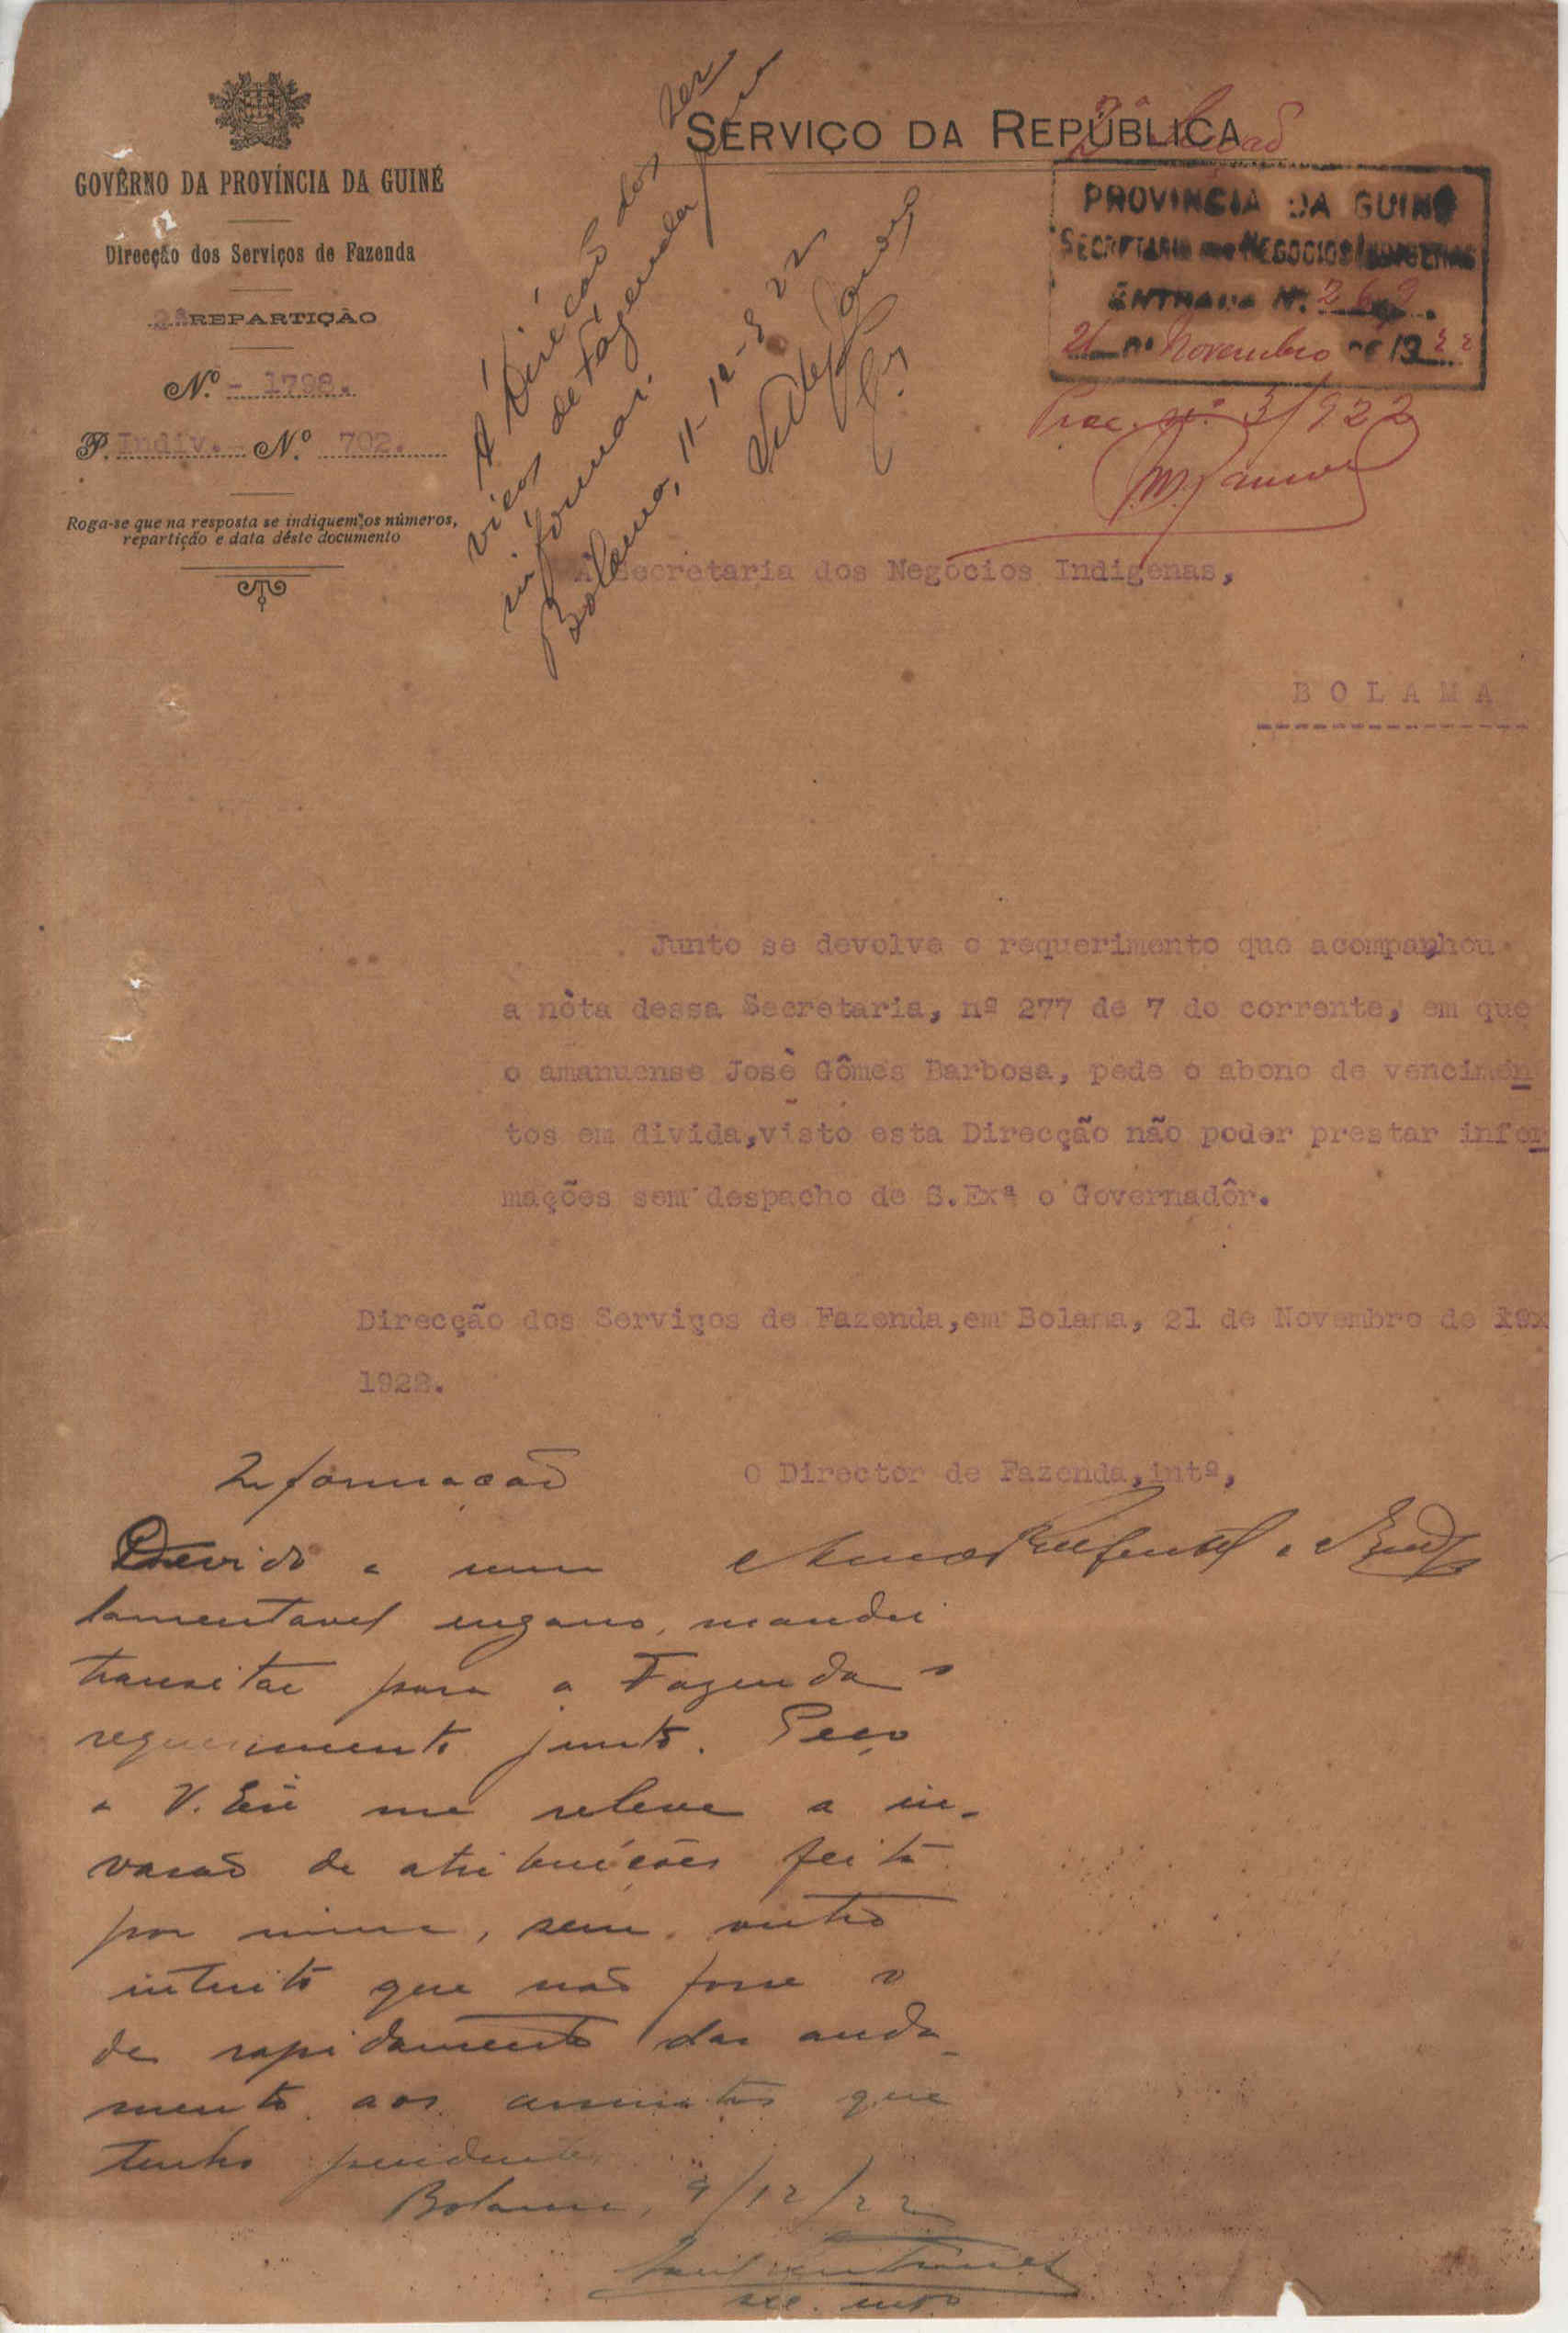 GOVÊRNO DA PROVÍNCIA DA GUINÉ
Direcção dos Serviços de Fazenda
2ª REPARTIÇÃO
N.º - 1798.
P. Indiv. - N.º 702.
Roga-se que na resposta se indiquem os números,
repartição e data dêste documento
SERVIÇO DA REPÚBLICA
Á Direcção dos Ser
viços de Fazenda para
informar.
Bolama, 11-12-922
2ª Secção
PROVINCIA DA GUINÉ
SECRETARIA DOS NEGOCIOS INDIGENAS
ENTRADA N.º 269
21 DE Novembro DE 1922
Proc. nº 3/922
Á Secretaria dos Negócios Indigenas,
BOLAMA
Junto se devolve o requerimento que acompanhou
a nòta dessa Secretaria, nº 277 de 7 do corrente, em que
o amanuense Josè Gômes Barbosa, pede o abono de vencimen
tos em divida, visto esta Direcção não poder prestar infor
mações sem despacho de S.Exª o Governadôr.
Direcção dos Serviços de Fazenda, em Bolama, 21 de Novembro de 19x
1922.
O Director de Fazenda, intº,
Informação
Devido a um
lamentavel engano, mandei
transitar para a Fazenda o
requerimento junto. Peço
a V. Exª me releve a in-
vasão de atribuições feita
por mim, sem outro
intuito que não fosse o
de rapidamente dar anda-
mento aos assuntos que
tenho pendentes
Bolama, 9/12/22
sec. intº